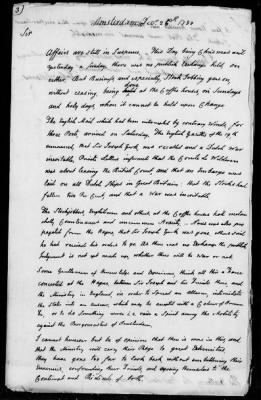 3)
Amsterdam Decr. 26th. 1780
Sir
Affairs are still in Suspence. This Day being Christmas and
yesterday a Sunday, there was no publick Exchange held, on
either. But Business and especially Stock Jobbing goes on,
without ceasing, being done at the Coffee houses, on Sundays
and holy days, when it cannot be held upon Change
The English Mail which had been interrupted by contrary Winds, for
three Posts, arrived on Saturday. The English Gazettes of the 19th
announced, that Sir Joseph York was recalled and a Dutch War
inevitable, Private Letters informed that the Comte de Welderen
was about leaving the British Court, and that an Embargo was
laid on all Dutch Ships in Great Britain, that the Stocks had
fallen two Per Cent, and that a War was inevitable.
The Stockjobbers, Englishmen and others, at the Coffee houses, took melan-
cholly Countenances and uncommon Anxiety. News was also pro
pagated from the Hague, that Sir Joseph York was gone, others said
he had received his orders to go. As there was no Exchange the publick
Judgment is not yet made up, whether there will be War or not.
Some Gentlemen of Knowledge and Experience, think all this a Farce
concerted at the Hague, between Sir Joseph and his Friends there, and
the Ministry in England, in order to spread an alarm, intimidate
the State into an answer, which may be accepted with a Colour of Honour
or to do something worse i.e. raise a Spirit among the Mobility
against the Burgomasters of Amsterdam.
I cannot however but be of opinion that there is more in this, and
that the Ministry will carry their Rage to great Extremities
they have gone too far to look back without emboldening their
Enemies, confounding their Friends, and exposing themselves to the
Contempt and Ridicule of both.